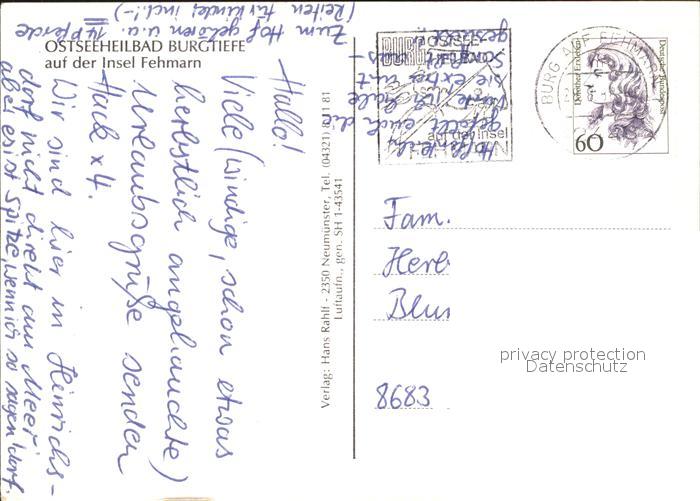 OSTSEEHEILBAD BURGTIEFE
auf der Insel Fehmarn
Hallo!
Viele (windige, schon etwas
herbstlich angehauchte)
Urlaubsgrüße senden
Hack x 4.
Wir sind hier in Heinrichs-
dorf nicht direkt am Meer
aber es ist Spitze, wenn ich so sagen darf.
Zum Hof gehören u.a. 14 Pferde
(Reiten für Kinder incl.! -)
Hoffentlich
gefällt euch die
Karte. Ich habe
sie extra mit
Verlag: Hans Rahlf - 2350 Neumünster, Tel. (04321)
Luftaufn., gen. SH 1-43541
BURG
OSTSEE
auf der Insel
FEHMARN
BURG AUF FEHMARN
Dorothea Erxleben
Deutsche Bundespost
60
Fam.
Herb
Blum
8683
privacy protection
Datenschutz